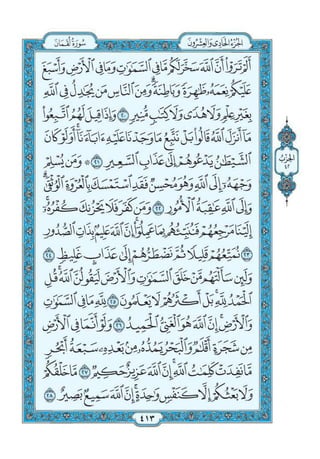 سُورَةُ لُقْمَان
الجُزْءُ الحَادِي وَالعِشْرُونَ
أَلَمْ تَرَوْا أَنَّ اللَّهَ سَخَّرَ لَكُم مَّا فِي السَّمَاوَاتِ وَمَا فِي الْأَرْضِ وَأَسْبَغَ
عَلَيْكُمْ نِعَمَهُ ظَاهِرَةً وَبَاطِنَةً وَمِنَ النَّاسِ مَن يُجَادِلُ فِي اللَّهِ
بِغَيْرِ عِلْمٍ وَلَا هُدًى وَلَا كِتَابٍ مُّنِيرٍ ٢٠ وَإِذَا قِيلَ لَهُمُ اتَّبِعُوا
مَا أَنزَلَ اللَّهُ قَالُوا بَلْ نَتَّبِعُ مَا وَجَدْنَا عَلَيْهِ آبَاءَنَا أَوَلَوْ كَانَ
الشَّيْطَانُ يَدْعُوهُمْ إِلَىٰ عَذَابِ السَّعِيرِ ٢١ ۞ وَمَن يُسْلِمْ
وَجْهَهُ إِلَى اللَّهِ وَهُوَ مُحْسِنٌ فَقَدِ اسْتَمْسَكَ بِالْعُرْوَةِ الْوُثْقَىٰ
وَإِلَى اللَّهِ عَاقِبَةُ الْأُمُورِ ٢٢ وَمَن كَفَرَ فَلَا يَحْزُنكَ كُفْرُهُ
إِلَيْنَا مَرْجِعُهُمْ فَنُنَبِّئُهُم بِمَا عَمِلُوا إِنَّ اللَّهَ عَلِيمٌ بِذَاتِ الصُّدُورِ
٢٣ نُمَتِّعُهُمْ قَلِيلًا ثُمَّ نَضْطَرُّهُمْ إِلَىٰ عَذَابٍ غَلِيظٍ ٢٤
وَلَئِن سَأَلْتَهُم مَّنْ خَلَقَ السَّمَاوَاتِ وَالْأَرْضَ لَيَقُولُنَّ اللَّهُ قُلِ
الْحَمْدُ لِلَّهِ بَلْ أَكْثَرُهُمْ لَا يَعْلَمُونَ ٢٥ لِلَّهِ مَا فِي السَّمَاوَاتِ
وَالْأَرْضِ إِنَّ اللَّهَ هُوَ الْغَنِيُّ الْحَمِيدُ ٢٦ وَلَوْ أَنَّمَا فِي الْأَرْضِ
مِن شَجَرَةٍ أَقْلَامٌ وَالْبَحْرُ يَمُدُّهُ مِن بَعْدِهِ سَبْعَةُ أَبْحُرٍ
مَّا نَفِدَتْ كَلِمَاتُ اللَّهِ إِنَّ اللَّهَ عَزِيزٌ حَكِيمٌ ٢٧ مَّا خَلْقُكُمْ
وَلَا بَعْثُكُمْ إِلَّا كَنَفْسٍ وَاحِدَةٍ إِنَّ اللَّهَ سَمِيعٌ بَصِيرٌ ٢٨
الحِزْبُ
٤٢
٤١٣